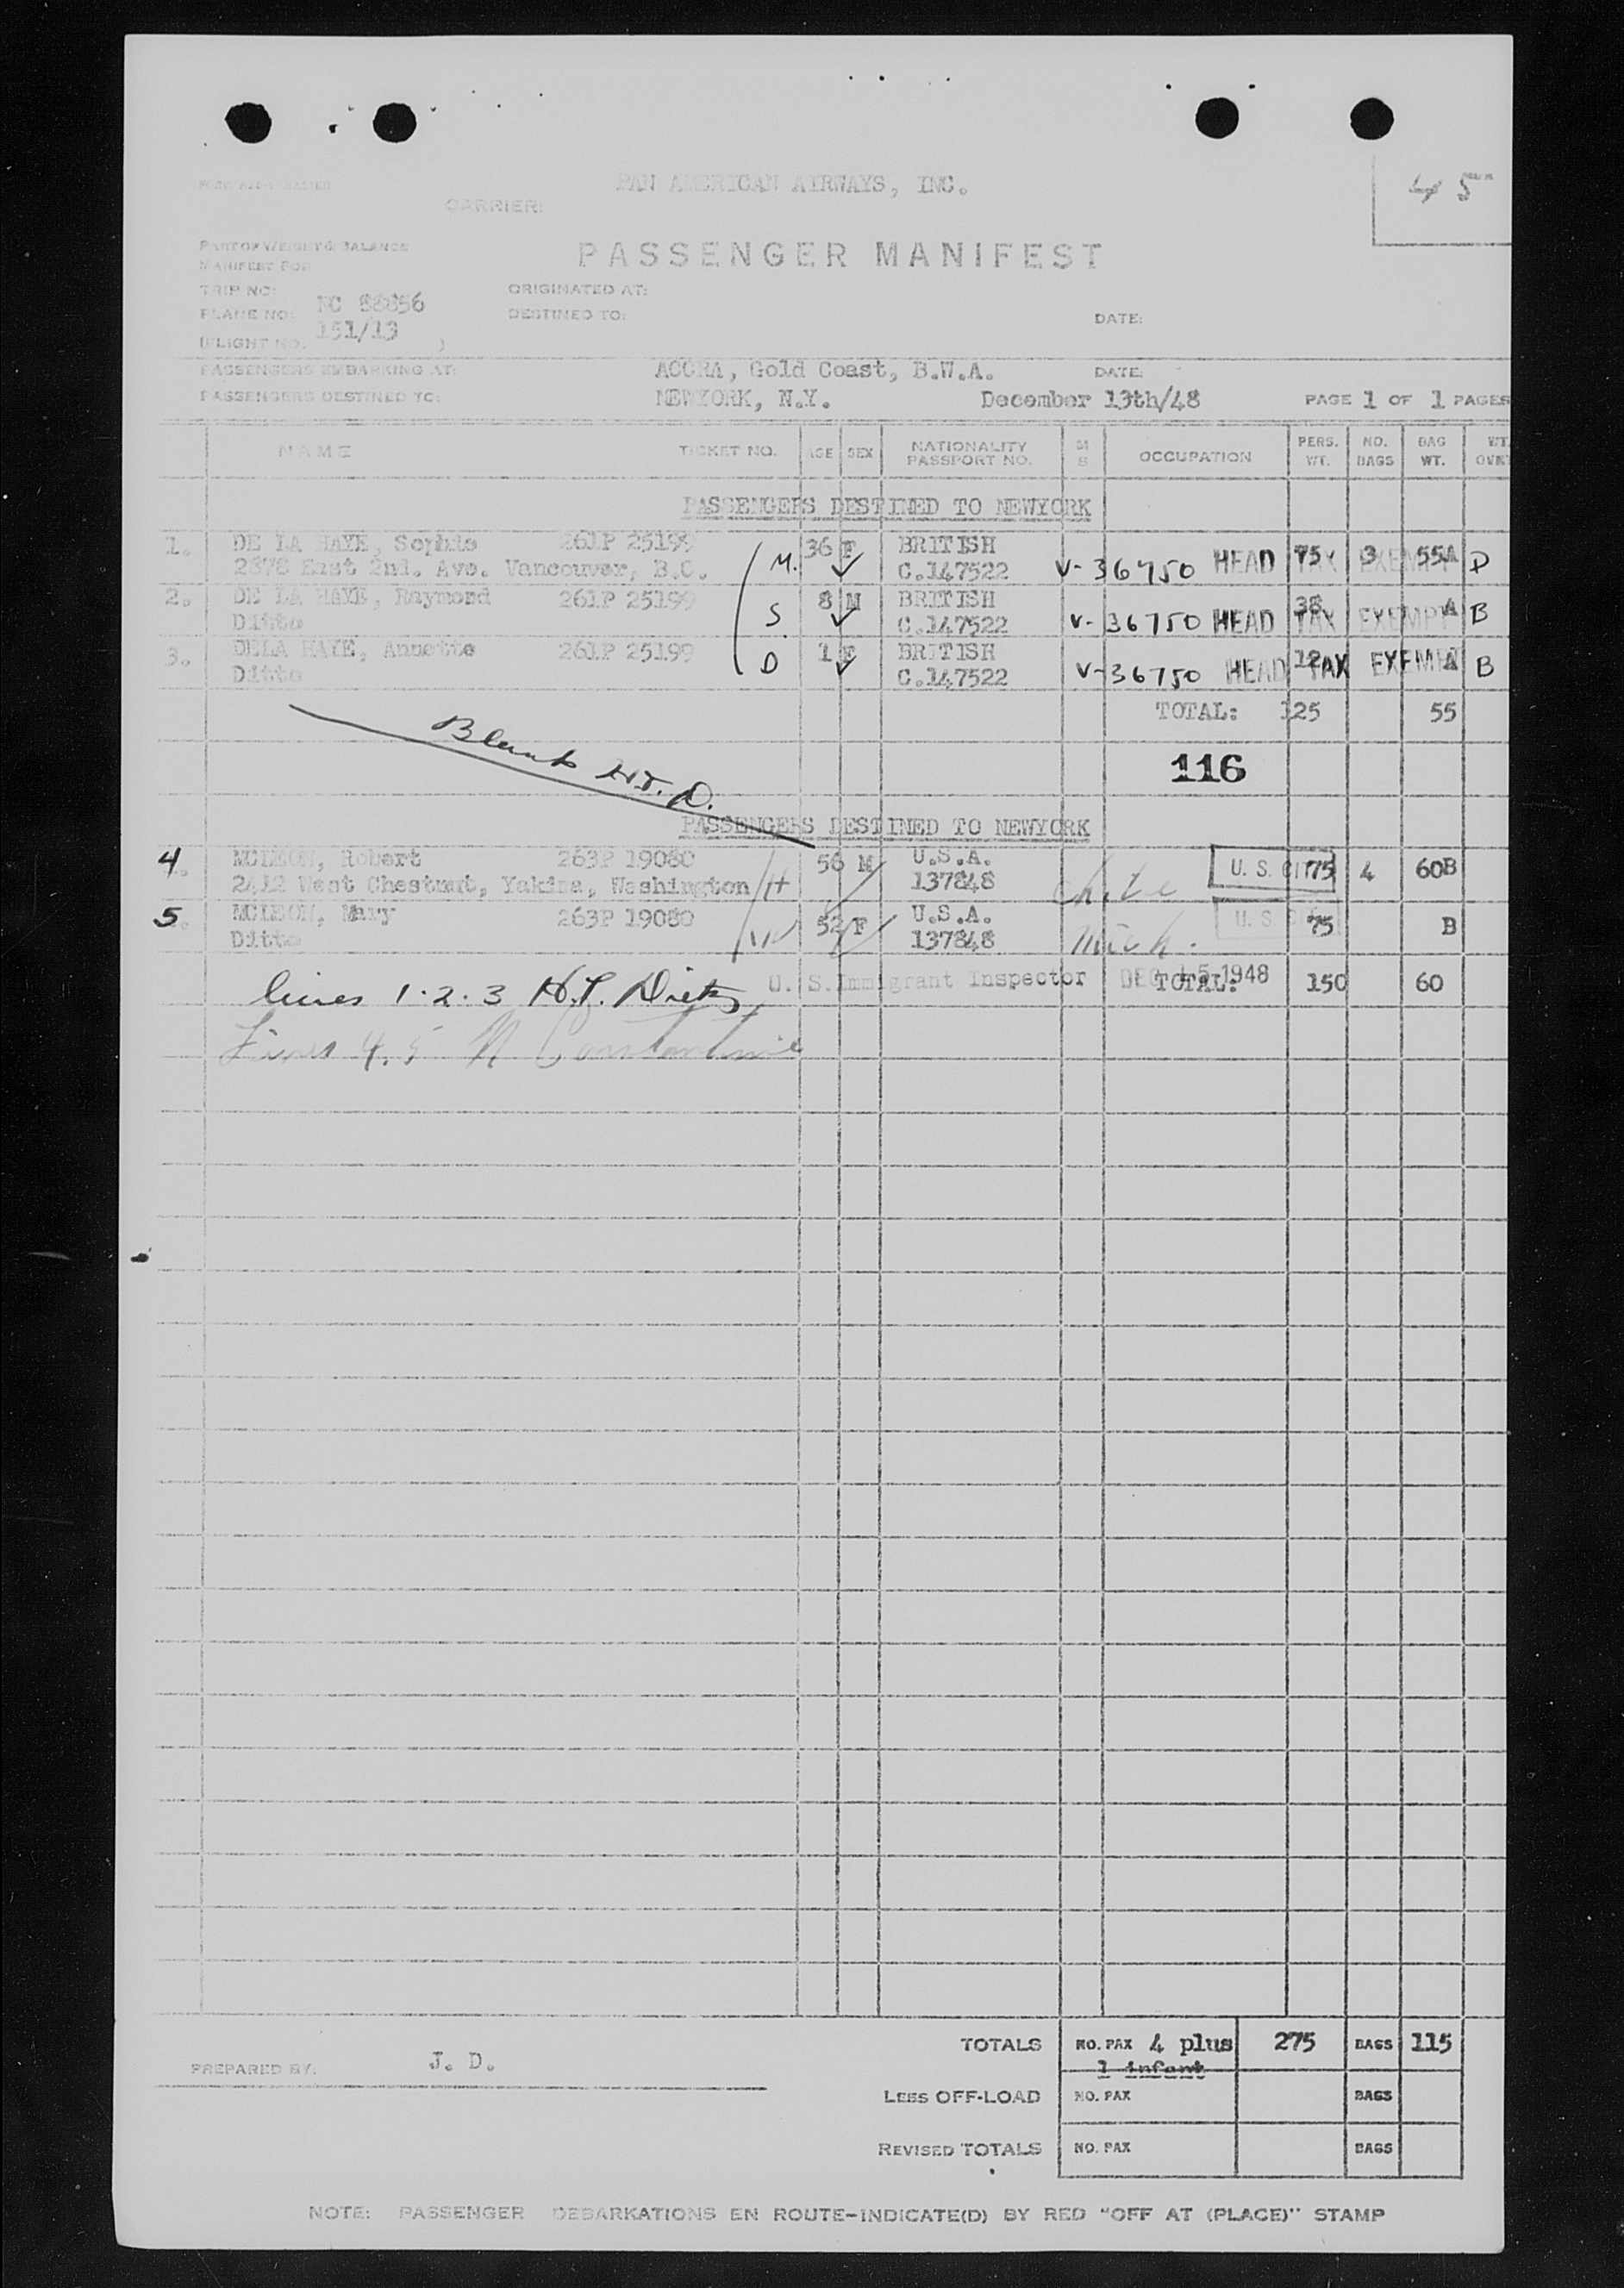 PAN AMERICAN AIRWAYS, INC.
45
CARRIER:
PART OF WEIGHT & BALANCE
PASSENGER MANIFEST
MANIFEST FOR
TRIP NO: ORIGINATED AT:
PLANE NO: NC 88856 DESTINED TO: DATE:
(FLIGHT NO. 151/13 )
PASSENGERS EMBARKING AT: ACCRA, Gold Coast, B.W.A. DATE:
PASSENGERS DESTINED TO: NEWYORK, N.Y. December 13th/48 PAGE 1 OF 1 PAGES
NAME TICKET NO. AGE SEX NATIONALITY PASSPORT NO. M S OCCUPATION PERS. WT. NO. BAGS BAG WT. WT.
PASSENGERS DESTINED TO NEWYORK
1. DE LA HAYE, Sophie 261P 25199 M. 36 F BRITISH HEAD TAX EXEMPT 75 3 55A D
East 2nd. Ave. Vancouver, B.C. C.147522 V-36750
2. DE LA HAYE, Raymond 261P 25199 S 8 M BRITISH 38 A B
Ditto C.147522 V-36750 HEAD TAX EXEMPT
3. DELA HAYE, Annette 261P 25199 D 1 F BRITISH 12 A B
Ditto C.147522 V-36750 HEAD TAX EXEMPT
TOTAL: 125 55
Blank H.T.D.
116
PASSENGERS DESTINED TO NEWYORK
4. Robert 263P 19080 H 56 M U.S.A. U.S. CIT 75 4 60B
2412 West Chestnut, Yakima, Washington 137848
5. Mary 263P 19080 W 52 F U.S.A. Mich. U.S. 75 B
Ditto 137848
lines 1.2.3 H.T. Dietz U. S. Immigrant Inspector DEC 15 1948 TOTAL: 150 60
Lines 4.5 N Constantine
TOTALS NO. PAX 4 plus 1 infant 275 BAGS 115
PREPARED BY: J. D.
LESS OFF-LOAD NO. PAX BAGS
REVISED TOTALS NO. PAX BAGS
NOTE: PASSENGER DEBARKATIONS EN ROUTE-INDICATE(D) BY RED "OFF AT (PLACE)" STAMP